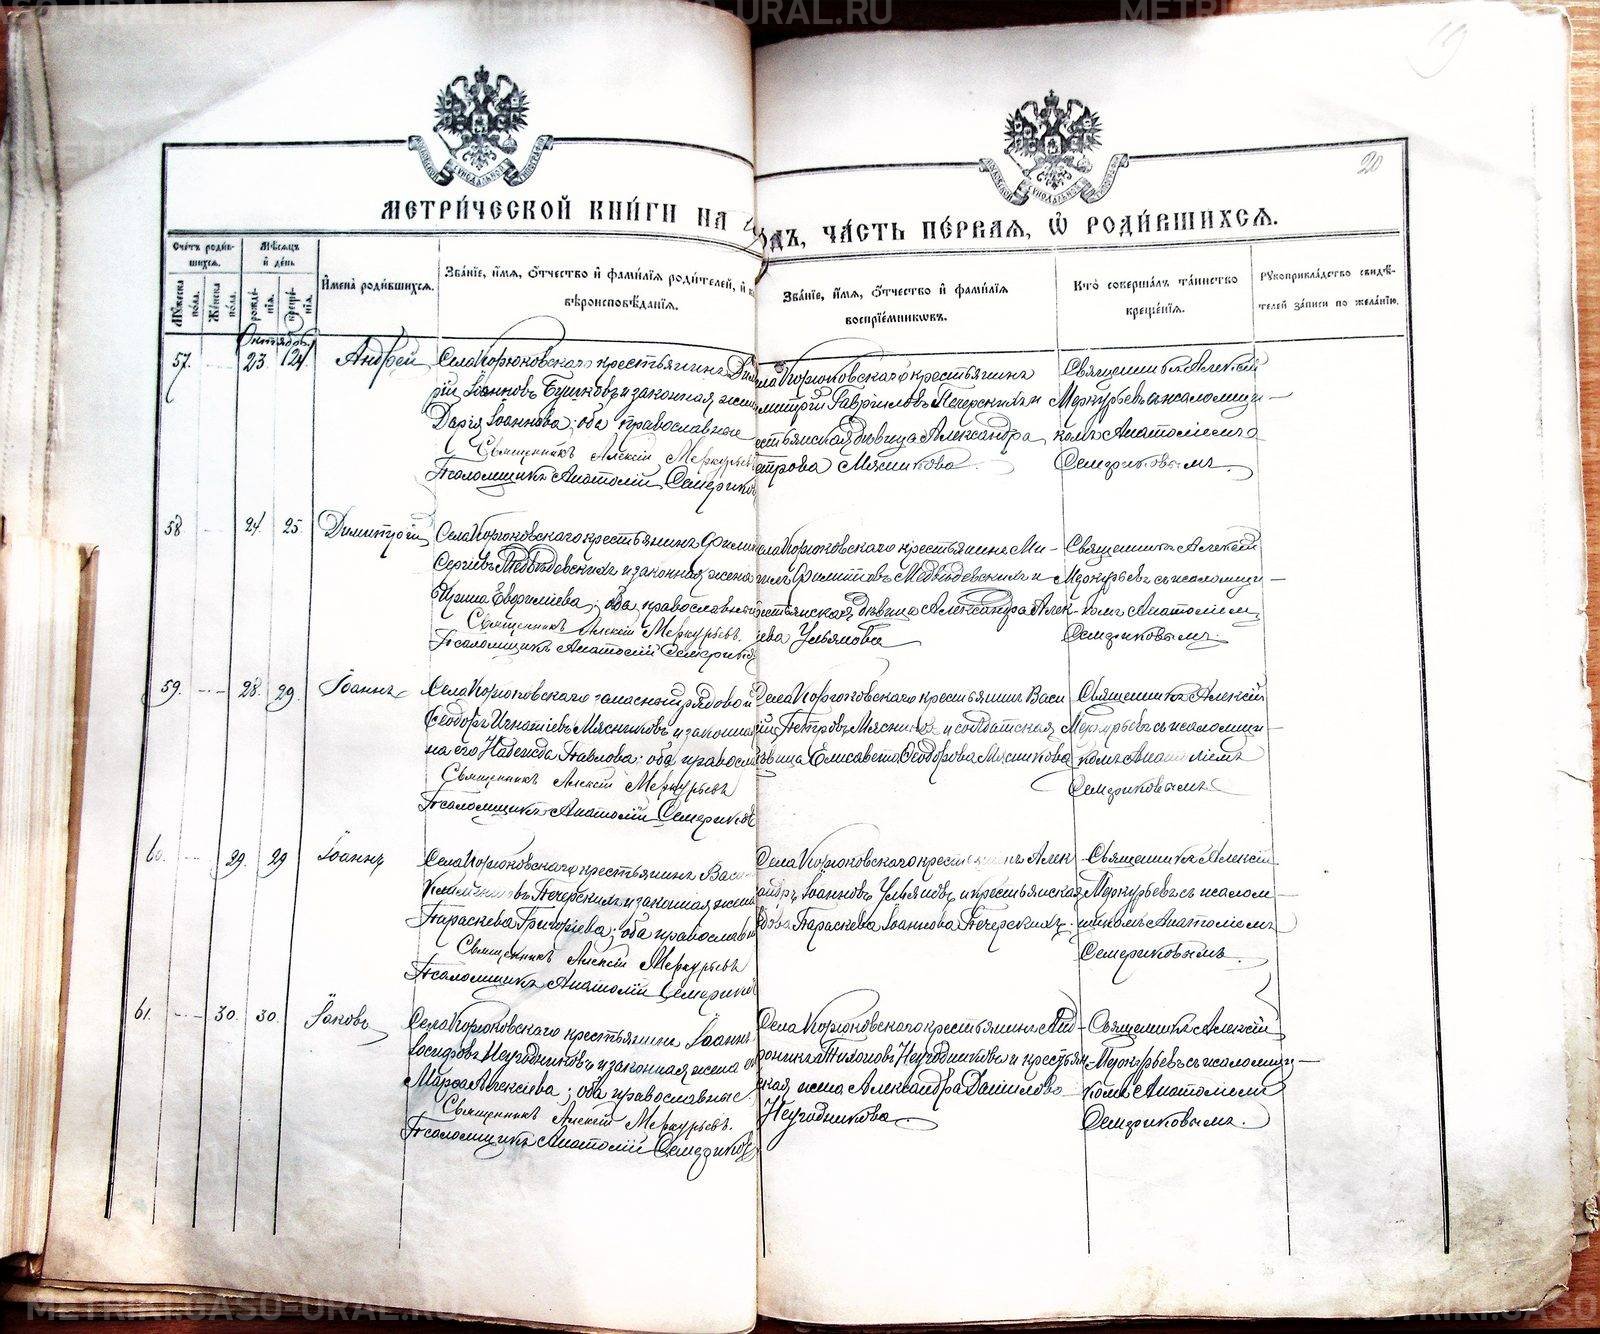 METRIKI.GASO-URAL.RU
20
МЕТРИ́ЧЕСКОЙ КНИ́ГИ НА
ГОДЪ, ЧА́СТЬ ПЕ́РВАЯ, Ѡ РОДИ́ВШИХСЯ.
Сче́тъ роди́вшихся.
Му́жеска пола.
Же́нска пола.
Мѣ́сяцъ и҆ день
рожде́нїя.
креще́нїя.
И҆мена̀ роди́вшихся.
Зва́нїе, и҆́мя, ѻ҆́тчество и҆ фами́лїя роди́телей, и҆
вѣроисповѣ́данїя.
Зва́нїе, и҆́мя, ѻ҆́тчество и҆ фами́лїя
воспрїе́мникѡвъ.
Кто̀ соверша́лъ та́инство
креще́нїя.
Рꙋкоприкла́дство свидѣ́телей за́писи по жела́нїю.
Октябрь
57. 23 24 Андрей
Села Корюковскаго крестьянинъ
Іоанновъ и законная
Дарія Іоаннова; оба православные
Священникъ Алексій Меркурьевъ
Псаломщикъ Анатолій Семериков
Села Корюковскаго крестьянинъ
Гавріиловъ Печерскихъ и
крестьянская дѣвица Александра
Петрова Мясникова.
Священникъ Алексій
Меркурьевъ съ псаломщи-
комъ Анатоліемъ
Семериковымъ.
58 24 25. Димитрій
Села Корюковскаго крестьянинъ Филип
Сергіевъ Медвѣдевскихъ и законная жена
Ирина Евфиміева; оба православные
Священникъ Алексій Меркурьевъ.
Псаломщикъ Анатолій Семериков
Села Корюковскаго крестьянинъ Ми-
хаилъ Филипповъ Медвѣдевскихъ и
крестьянская дѣвица Александра Алек-
сеева Ульянова
Священникъ Алексій
Меркурьевъ съ псаломщи-
комъ Анатоліемъ
Семериковымъ.
59. 28. 29. Іоаннъ
Села Корюковскаго запасный рядовой
Ѳеодоръ Игнатіевъ Мясниковъ и законная
на его Надежда Павлова; оба правосл
Священникъ Алексій Меркурьевъ
Псаломщикъ Анатолій Семериков
Села Корюковскаго крестьянинъ Васи
лій Петровъ Мясниковъ и солдатская
дѣвица Елисавета Ѳеодорова Мясникова
Священникъ Алексій
Меркурьевъ съ псаломщи-
комъ Анатоліемъ
Семериковымъ
60. 29. 29 Іоаннъ
Села Корюковскаго крестьянинъ Васи
Печерскихъ и законная жена
Параскева Григоріева; оба православн
Священникъ Алексій Меркурьевъ
Псаломщикъ Анатолій Семериков
Села Корюковскаго крестьянинъ Алек
андръ Іоанновъ Ульяновъ и крестьянская
вдова Параскева Іоаннова Печерскихъ.
Священникъ Алексій
Меркурьевъ съ псалом-
щикомъ Анатоліемъ
Семериковымъ.
61. 30. 30. Іаковъ
Села Корюковскаго крестьянинъ Іоаннъ
Іосифовъ Неугодниковъ и законная жена
Марѳа Алексіева; оба православные.
Священникъ Алексій Меркурьевъ.
Псаломщикъ Анатолій Семериков
Села Корюковскаго крестьянинъ Анд-
роникъ Тихоновъ Неугодниковъ и крестьян-
ская жена Александра Данилова
Неугодникова
Священникъ Алексій
Меркурьевъ съ псаломщи-
комъ Анатоліемъ
Семериковымъ.
METRIKI.GASO-URAL.RU